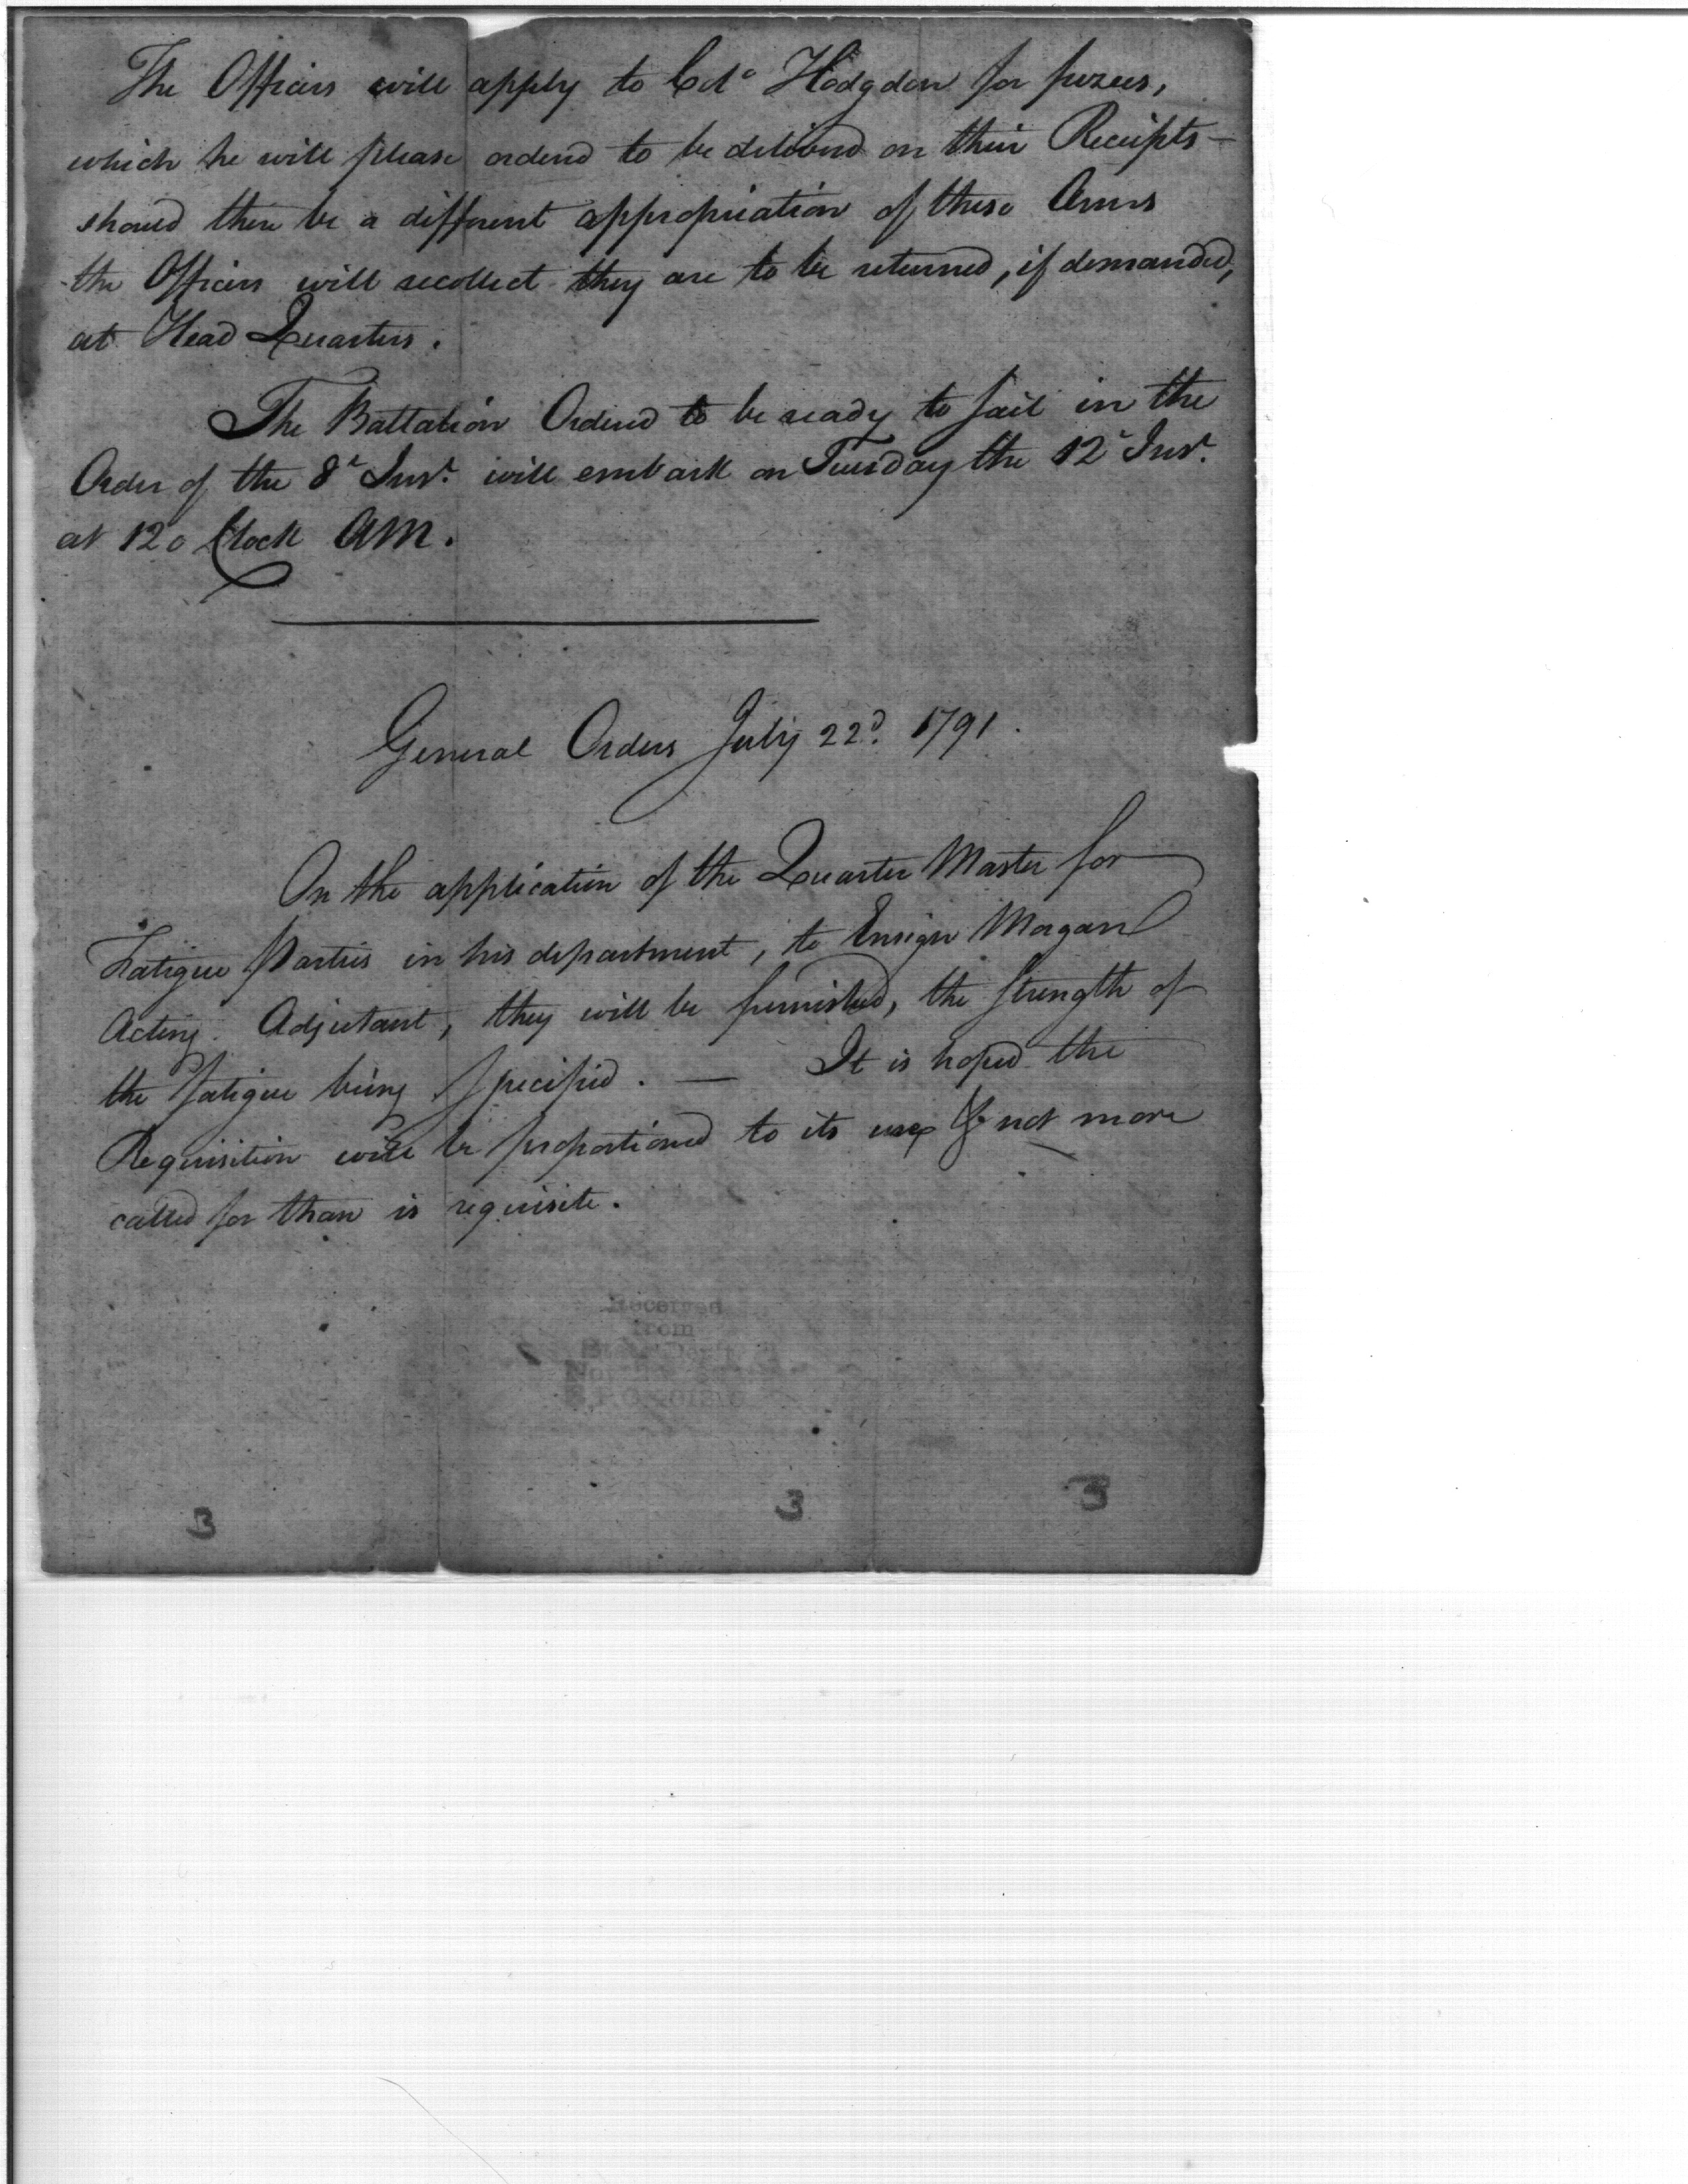 The Officers will apply to Col.º Hodgdon for fuzees,
which he will please ordered to be delivered on their Receipts —
should there be a different appropriation of these Arms
the Officers will recollect they are to be returned, if demanded,
at Head Quarters.
The Battalion Ordered to be ready to sail in the
Order of the 8ᵗ Insᵗ. will embark on Tuesday the 12ᵗ Insᵗ.
at 12 o Clock AM.
General Orders July 22ᵈ. 1791.
On the application of the Quarter Master for
Fatigue Parties in his department, to Ensign Morgan
Acting Adjutant, they will be furnished, the strength of
the fatigue being specified. — It is hoped the
Requisition will be proportioned to its use & not more
called for than is requisite.
Received
from
3 3 3